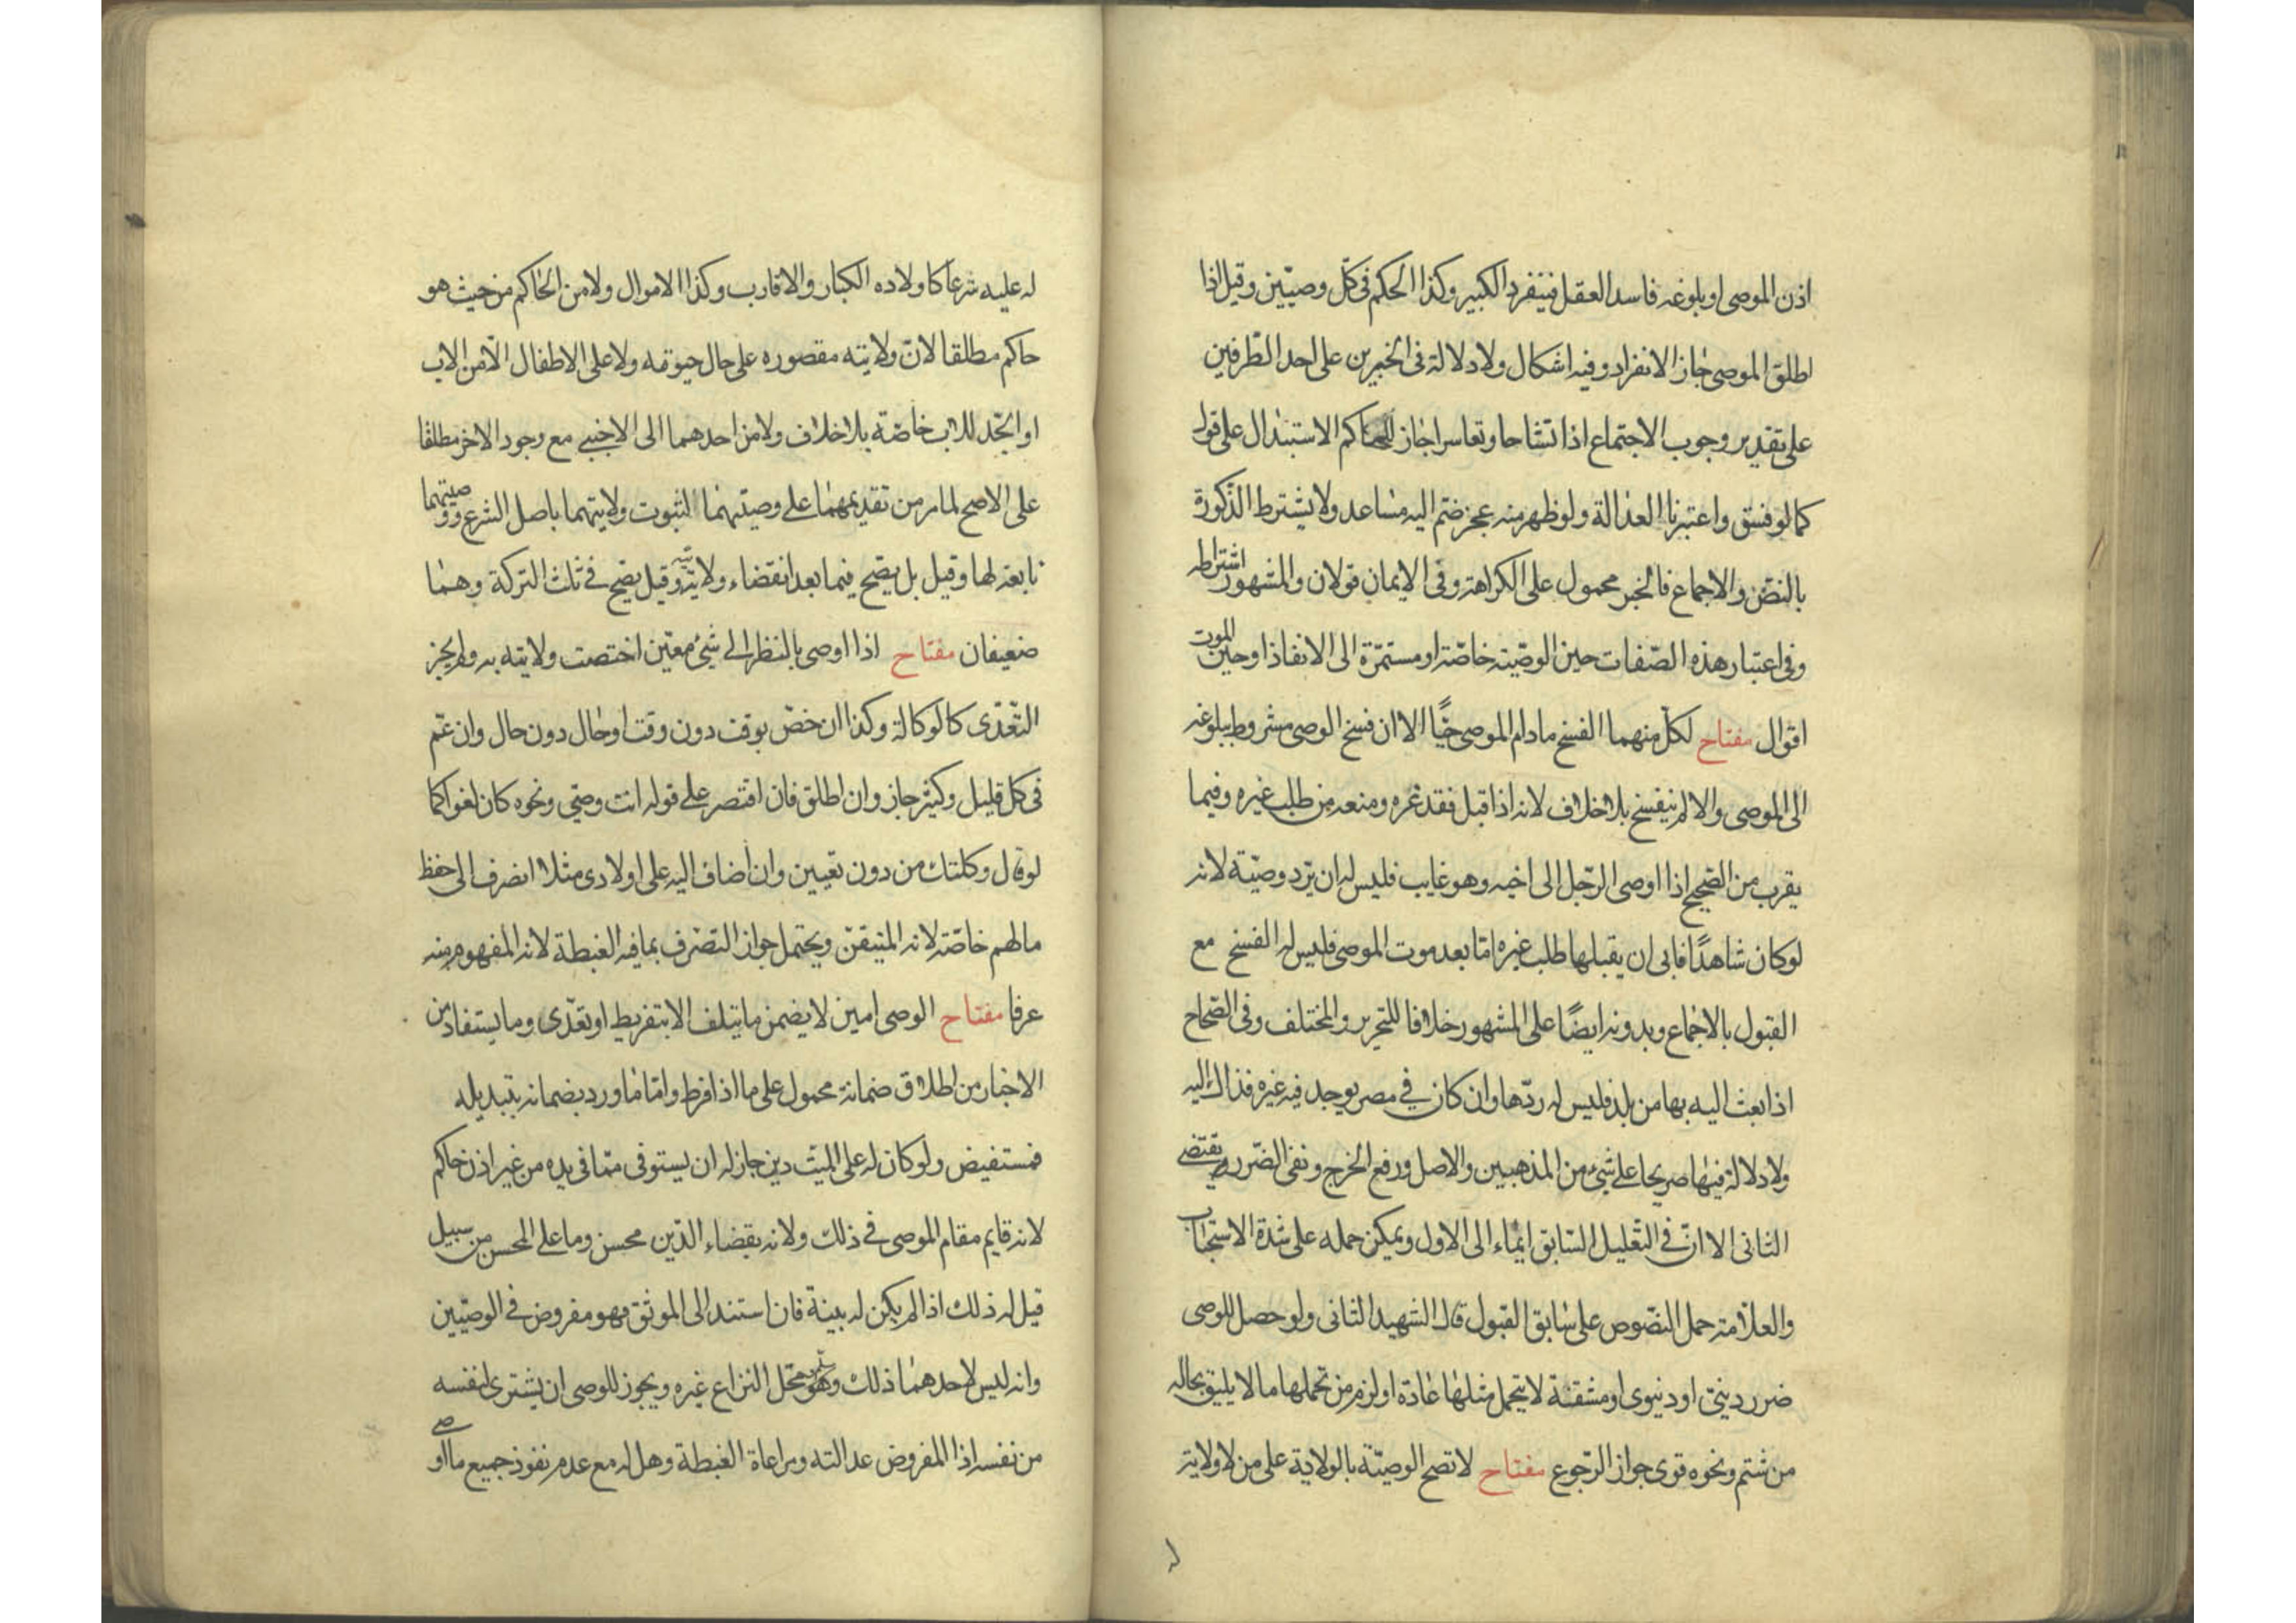 اذن الموصى او بلوغه فاسد العقل فينفرد الكبير وكذا الحكم فى كلّ وصيّين وقيل اذا
اطلق الموصى جاز الانفراد وفيه اشكال ولا دلالة فى الخبرين على احد الطّرفين
على تقدير وجوب الاجتماع اذا تشاحا وتعاسرا جاز للحاكم الاستبدال على قول
كما لو فسق واعتبرنا العدالة ولو ظهر منه عجز ضمّ اليه مساعد ولا يشترط الذّكورة
بالنصّ والاجماع فالخبر محمول على الكراهة وفى الايمان قولان والمشهور اشتراطه
وفى اعتبار هذه الصّفات حين الوصيّة خاصّة او مستمرّة الى الانفاذ او حين الموت
اقوال مفتاح لكلّ منهما الفسخ مادام الموصى حيًّا الا ان فسخ الوصى مشروط ببلوغه
الى الموصى والا لم ينفسخ بلا خلاف لانه اذا قبل فقد غره ومنعه من طلب غيره وفيما
يقرب من الصّحيح اذا اوصى الرّجل الى اخيه وهو غايب فليس له ان يردّ وصيّته لانه
لو كان شاهدًا فابى ان يقبلها طلب غيره امّا بعد موت الموصى فليس له الفسخ مع
القبول بالاجماع وبدونه ايضًا على المشهور خلافا للتحرير والمختلف وفى الصّحاح
اذا بعث اليه بها من بلد فليس له ردّها وان كان فى مصر يوجد فيه غيره فذاك اليه
ولا دلالة فيها صريحا على شىء من المذهبين والاصل ورفع الحرج ونفى الضّرر يقتضى
الثانى الا انّ فى التعليل السّابق ايماء الى الاول ويمكن حمله على شدة الاستحباب
والعلّامة حمل النصّوص على سابق القبول قال الشهيد الثانى ولو حصل للوصى
ضرر دينىّ او دنيوى او مشقّة لا يتحمل مثلها عادة او لزم من تحملها ما لا يليق بحاله
من شتم ونحوه قوى جواز الرّجوع مفتاح لا تصح الوصيّة بالولاية على من لا ولاية
له
له عليه شرعا كاولاده الكبار والاقارب وكذا الاموال ولا من الحاكم من حيث هو
حاكم مطلقا لانّ ولايته مقصوره على حال حيوته ولا على الاطفال الّا من الاب
او الجّد للاب خاصّة بلا خلاف ولا من احدهما الى الاجنبى مع وجود الاخر مطلقا
على الاصح لما مر من تقديمهما على وصيّهما لثبوت ولايتهما باصل الشرع ووصيتهما
تابعة لها وقيل بل يصّح فيما بعد انقضاء ولايته وقيل يصّح فى ثلث التركة وهما
ضعيفان مفتاح اذا اوصى بالنظر الى شىء معيّن اختصت ولايته به ولم يجز
التّعدّى كالوكالة وكذا ان خصّ بوقت دون وقت او حال دون حال وان عمّ
فى كل قليل وكثير جاز وان اطلق فان اقتصر على قوله انت وصيّى ونحوه كان لغوا كما
لو قال وكلتك من دون تعيين وان اضاف اليه على اولادى مثلا انصرف الى حفظ
مالهم خاصّة لانه المتيقّن ويحتمل جواز التصّرف بما فيه الغبطة لانه المفهوم منه
عرفا مفتاح الوصى امين لا يضمن ما يتلف الا بتفريط او تعدّى وما يستفاد من
الاخبار من اطلاق ضمانه محمول على ما اذا فرط وامّا ما ورد بضمانه بتبديله
فمستفيض ولو كان له على الميت دين جاز له ان يستوفى ممّا فى يده من غير اذن حاكم
لانه قايم مقام الموصى فى ذلك ولانه بقضاء الدّين محسن وما على المحسن من سبيل
قيل له ذلك اذا لم يكن له بينة فان استند الى الموثق فهو مفروض فى الوصيّين
وانه ليس لاحدهما ذلك وهو محّل النزاع غيره ويجوز للوصى ان يشترى لنفسه
من نفسه اذا المفروض عدالته ومراعاة الغبطة وهل له مع عدم نفوذ جميع ما اوصى